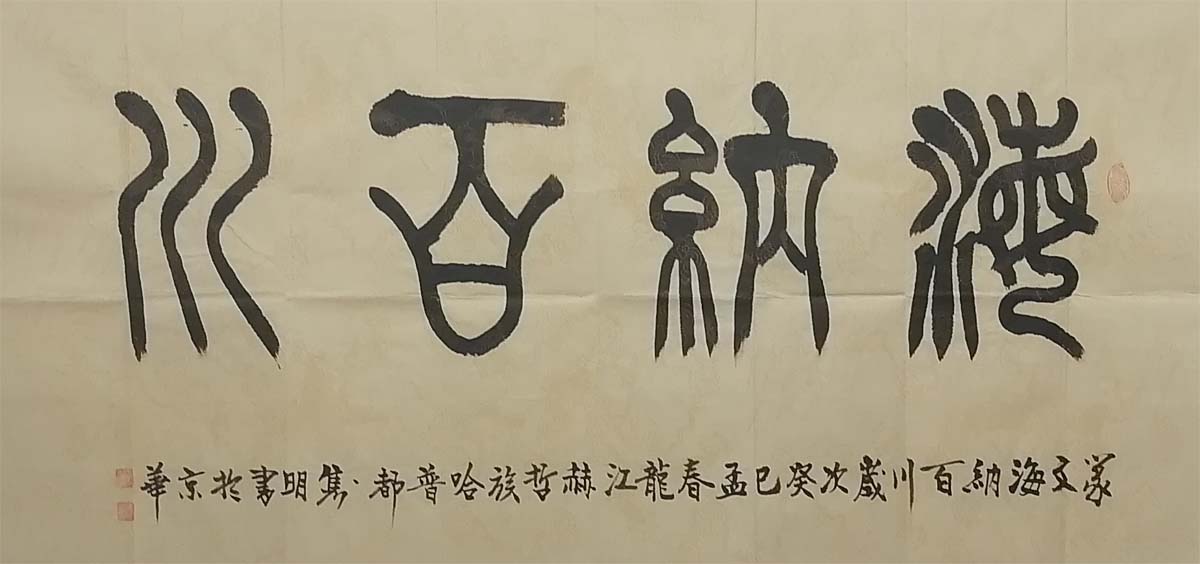 海納百川
篆文海納百川歲次癸巳孟春龍江赫哲族哈普都·雋明書於京華